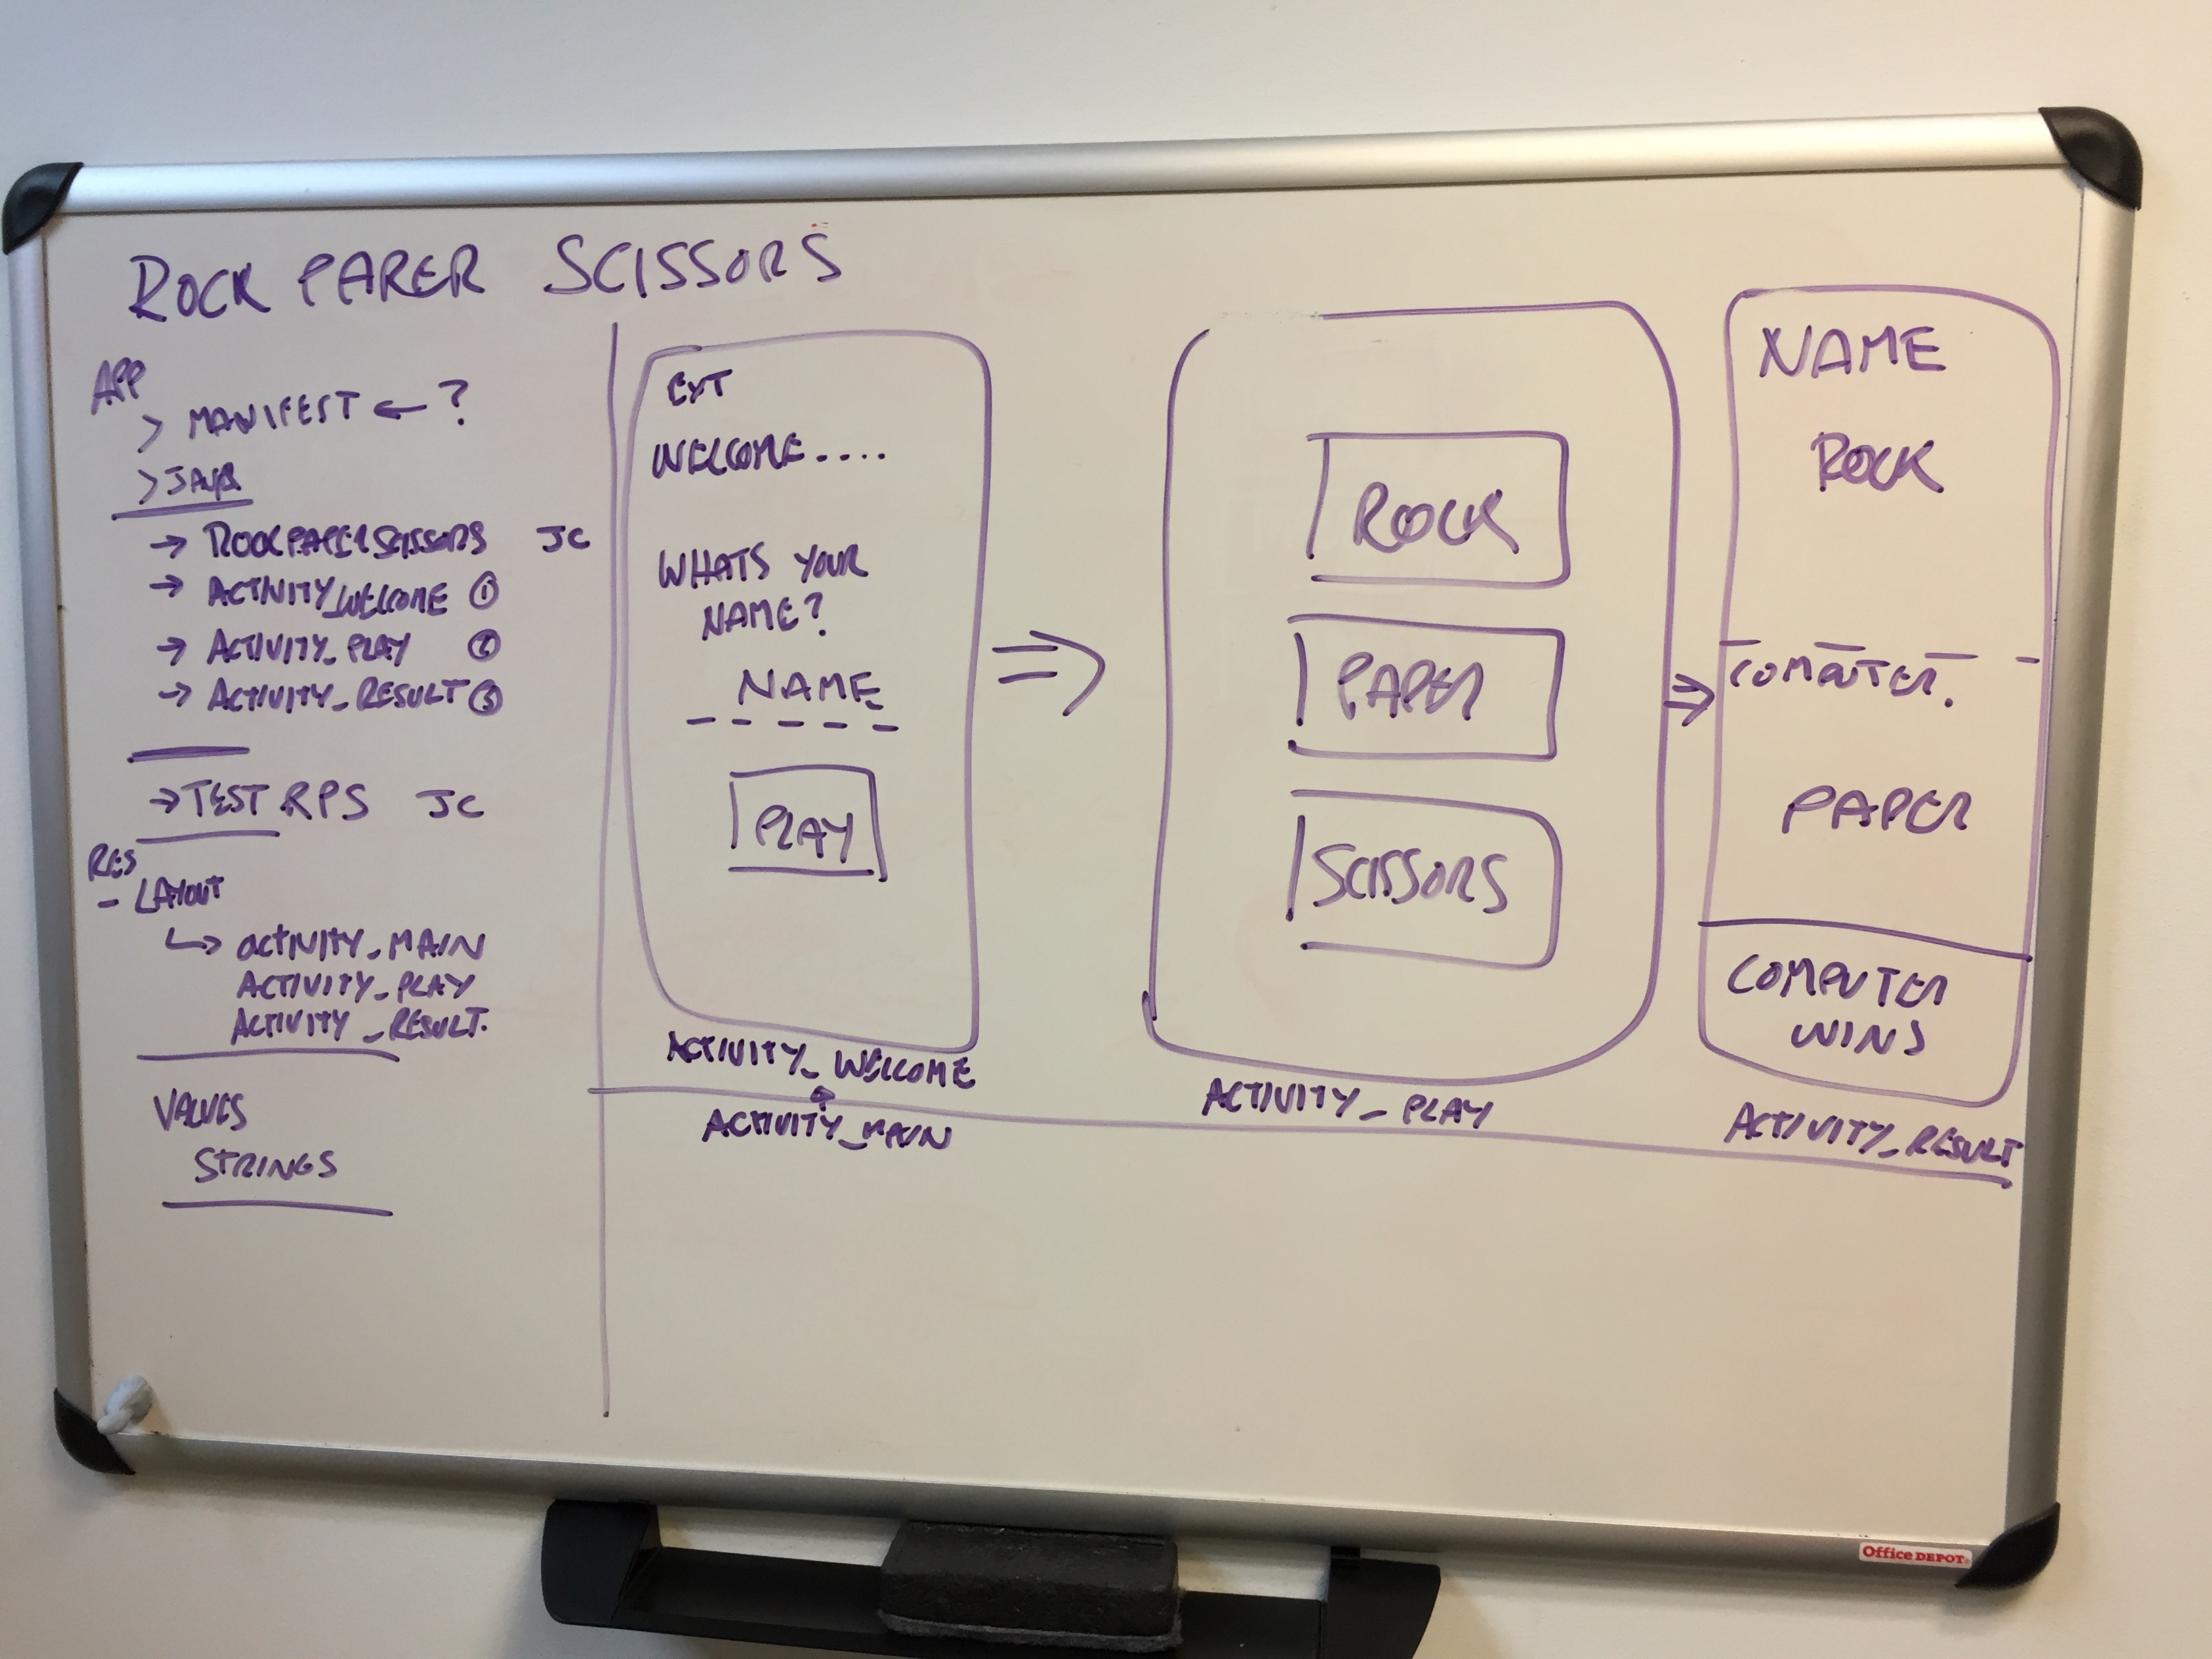 ROCK PAPER SCISSORS
APP
> MANIFEST ← ?
> JAVA
→ ROCKPAPERSCISSORS JC
→ ACTIVITY_WELCOME ①
→ ACTIVITY_PLAY ②
→ ACTIVITY_RESULT ③
→ TEST RPS JC
RES
- LAYOUT
↳ ACTIVITY_MAIN
ACTIVITY_PLAY
ACTIVITY_RESULT.
VALUES
STRINGS
WELCOME....
WHATS YOUR
NAME?
NAME
PLAY
ACTIVITY_WELCOME
ACTIVITY_MAIN
ROCK
PAPER
SCISSORS
ACTIVITY_PLAY
NAME
ROCK
COMPUTER.
PAPER
COMPUTER
WINS
ACTIVITY_RESULT
Office DEPOT